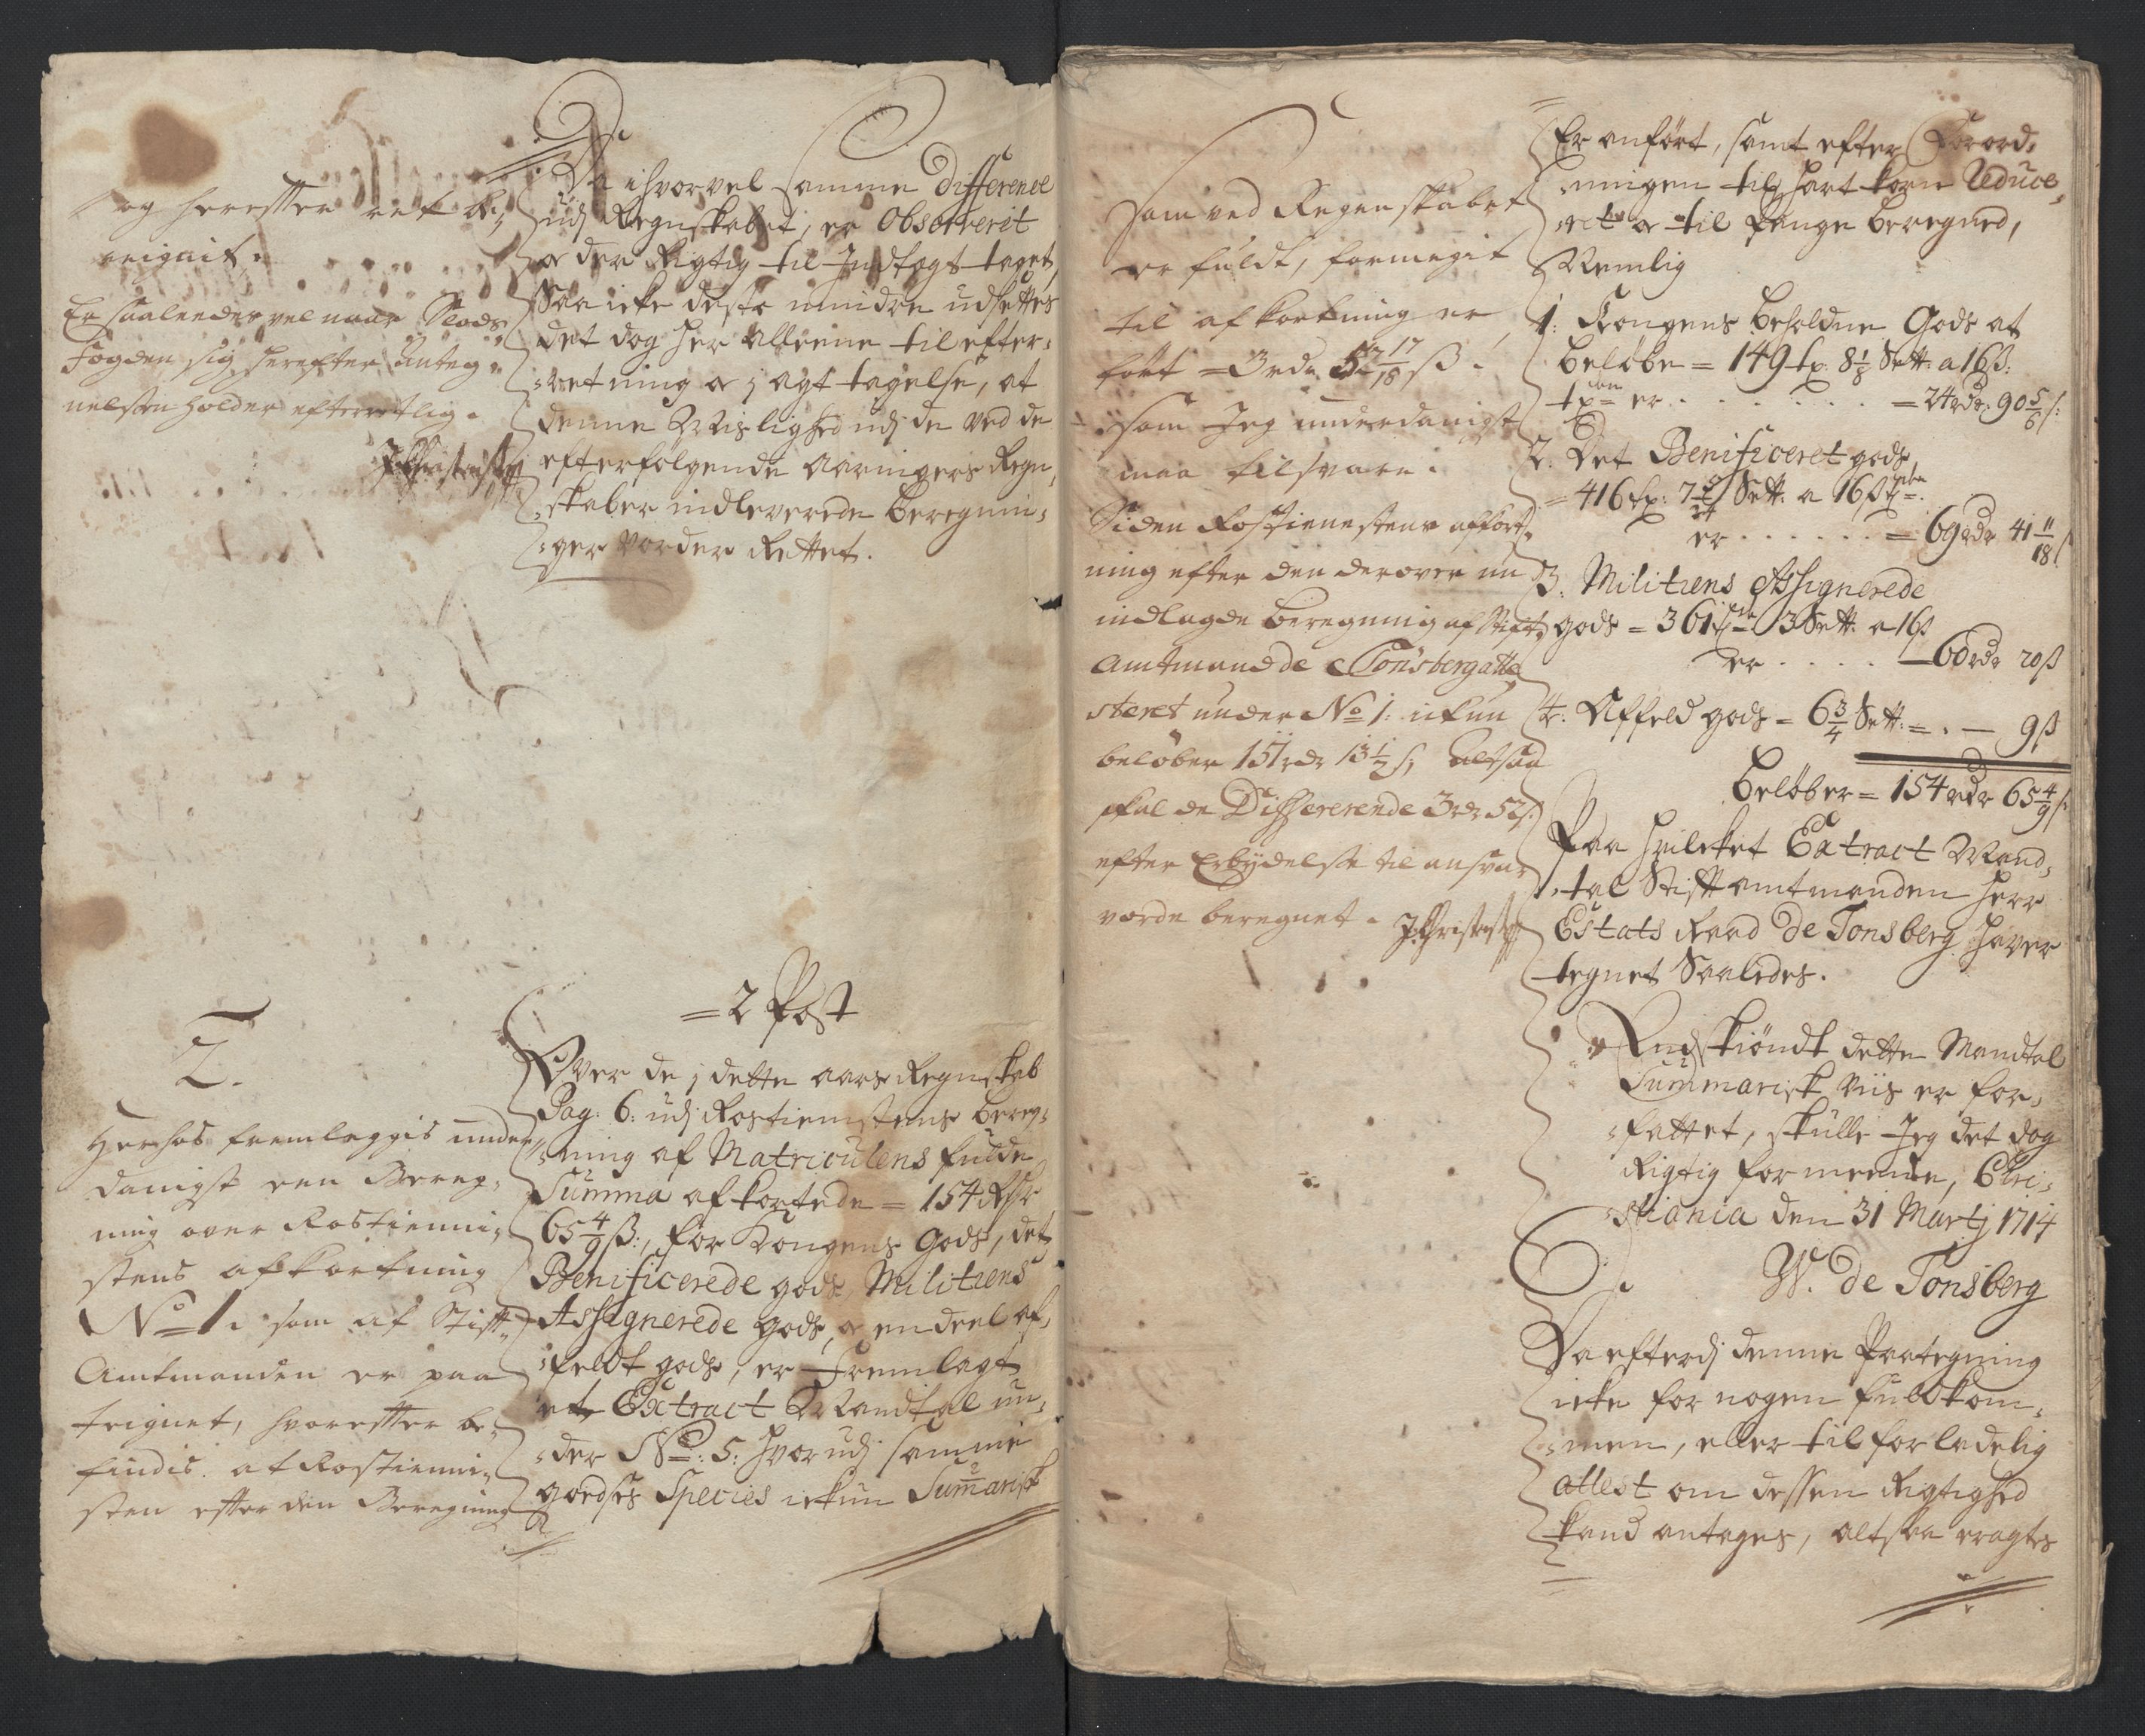 og herefter ret be,,
reignit.
Er saaleedes vel naar Slods
Fogden sig herefter Anteg,,
nelssen holder efterretlig.
J Christensen
Da ihvorvel samme Difference
udj Regnskabet, er Observerit
og der Rigtig til Indtegt taget,
Saa icke desto mindre udsettes
det dog her alleene til efter,
:retning og j agt tagelse, at
denne Wrislighed udj de ved de
efterfølgende Aaringers Regn,
:skaber indleverede beregnin,
:ger vorder Rettet.
2.
Herhos fremleggis under,,
danigst een Bereg,,
ning over Rostienni,,
stens afkortning
No 1. som af Stift,,
Amtmanden er paa
teignet, hvorefter be,,
findis at Rostienni,,
sten efter den Beregning
= 2 Post
Over de j dette aars Regnskab
Pag: 6: udj Rostienistens bereg,
:ning af Matriculens fulde
Summa afkortede = 154 Rdr
65 4/9 ß:, for Kongens Gods, det
Benificerede gods, Militiens
Assignerede gods, og en deel af,
:feldt gods, er Fremlagt
et Extract Mandtal un,
:der No: 5: hvorudj samme
goedses Species ickun Sumarisk
Som ved Regenskabet
er fuldt, formegit
til afkortning er
ført = 3 rdr 52 17/18 ß.
som Jeg underdanigst
maa tilsvare.
Siden Rostienestens afkort,,
ning efter den derover nu
indlagde beregning af Stift,,
Amtmand de Tonsberg atte,,
steret under No 1: ickun
beløber 151 rdr 13 1/2 ß, altsaa
skal de Differerende 3 rdr 52 ß
efter Erbydelse til ansvar
vorde beregnet. J Christensen
Er anført, samt efter Forord,
:ningen til Hart korn Reduce,
:ret og til penge beregned,
Nemlig
1: Kongens beholdne Gods at
beløbe = 149 tr. 8 1/8 Sett. a 16 ß:
er . . . . . = 24 rdr: 90 5/6 ß:
2. Det Benificeret gods
= 416 tr: 7 Sett. a 16 ß
er . . . . . . = 69 rdr 41 11/18 ß
3. Militiens Assignerede
gods = 361 3 Sett. a 16 ß
er . . . . — 60 rdr 20 ß
4. Affeld gods = 6 3/4 Sett: = . — 9 ß
Beløber = 154 rdr 65 4/9 ß:
Paa hvilcket Extract Mand,
:tal Stiftamtmanden Herr
Estats Raad de Tonsberg haver
tegnet Saaledes.
Endskiøndt dette Mandtal
Summarisk viis er for,
:fattet, skulle Jeg det dog
Rigtig formeene, Chri,
:stiania den 31 Martij 1714
W. de Tonsberg
Da efterdj denne Paategning
icke for nogen fuldkom,
:men, eller tilforladelig
attest om dessen Rigtighed
kand antages, altsaa eragtes